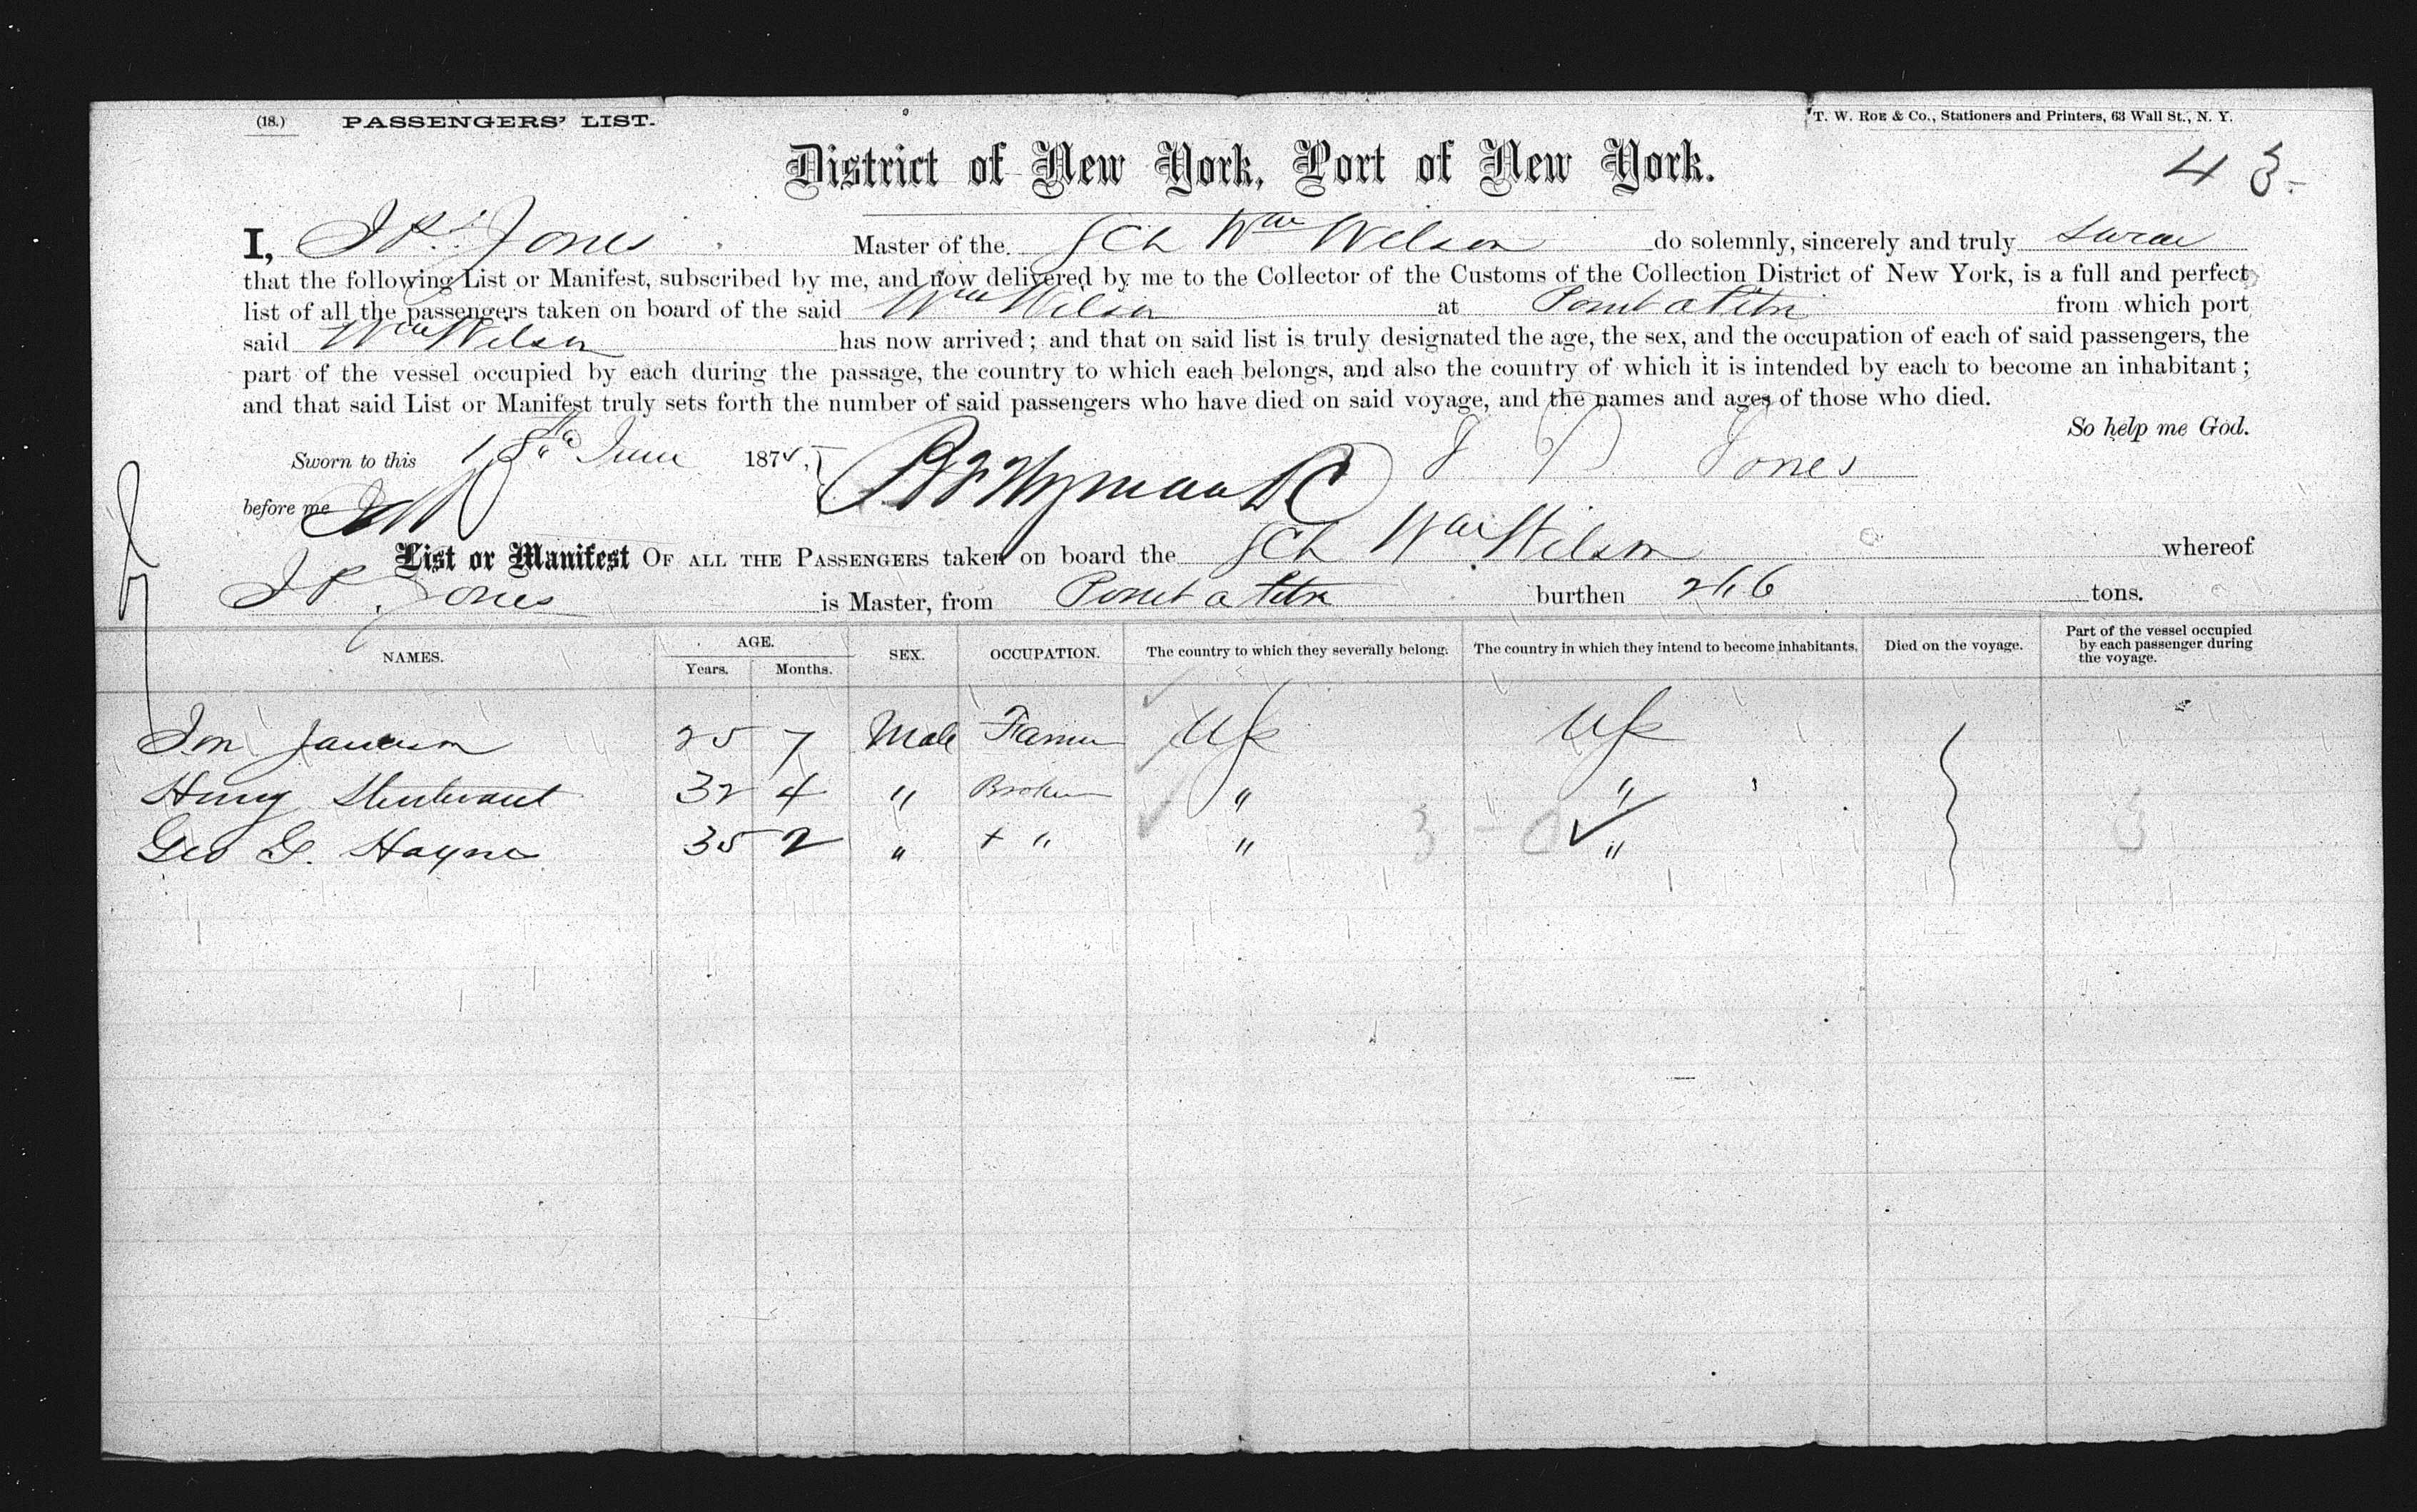 (18.) PASSENGERS' LIST.
T. W. ROE & CO., Stationers and Printers, 63 Wall St., N. Y.
District of New York, Port of New York.
43
I, J P Jones Master of the Sch Wm Wilson do solemnly, sincerely and truly swear
that the following List or Manifest, subscribed by me, and now delivered by me to the Collector of the Customs of the Collection District of New York, is a full and perfect
list of all the passengers taken on board of the said Wm Wilson at Point a Petre from which port
said Wm Wilson has now arrived; and that on said list is truly designated the age, the sex, and the occupation of each of said passengers, the
part of the vessel occupied by each during the passage, the country to which each belongs, and also the country of which it is intended by each to become an inhabitant;
and that said List or Manifest truly sets forth the number of said passengers who have died on said voyage, and the names and ages of those who died.
So help me God.
Sworn to this 18th June 187 J P Jones
before me
List or Manifest OF ALL THE PASSENGERS taken on board the Sch Wm Wilson whereof
J P Jones is Master, from Point a Petre burthen 266 tons.
NAMES. AGE. Years. Months. SEX. OCCUPATION. The country to which they severally belong. The country in which they intend to become inhabitants. Died on the voyage. Part of the vessel occupied by each passenger during the voyage.
25 7 Male Farmer US US
Henry Sturtevant 32 4 " Broker " "
Geo G. Haynes 35 2 " + " " "